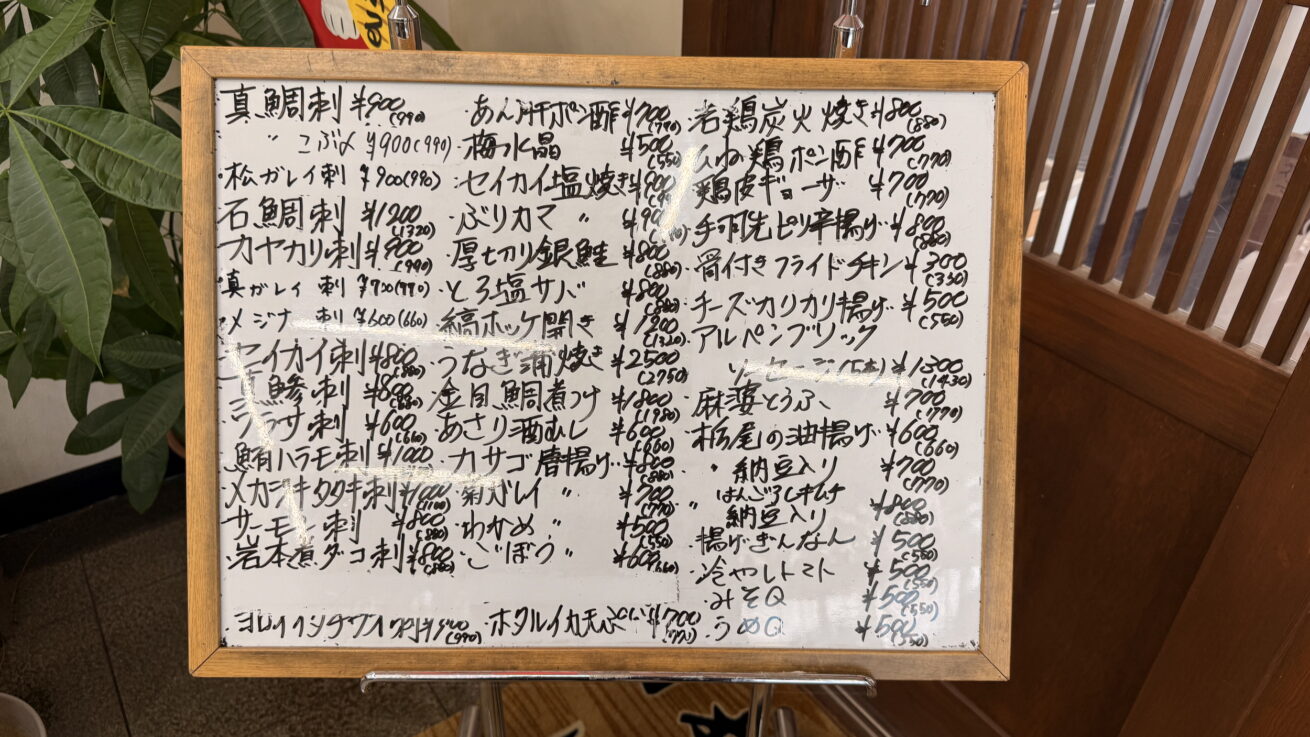 真鯛刺 ¥900(990)
〃 こぶ〆 ¥900(990)
・松ガレイ刺 ¥900(990)
石鯛刺 ¥1200(1320)
カヤカリ刺 ¥900(990)
・真ガレイ刺 ¥900(990)
・メジナ刺 ¥600(660)
セイカイ刺 ¥800(880)
真鯵刺 ¥800(880)
¥600(660)
鮪ハラモ刺 ¥1000
メカジキタタキ刺 ¥1000(1100)
サーモン刺 ¥800(880)
岩本煮ダコ刺 ¥800(880)
(990)
あん肝ポン酢 ¥700(770)
・梅水晶 ¥500(550)
・セイカイ塩焼き ¥900
・ぶりカマ 〃
・厚切り銀鮭 ¥800(880)
・とろ塩サバ ¥800(880)
縞ホッケ開き ¥1200(1320)
・うなぎ蒲焼き ¥2500(2750)
金目鯛煮つけ ¥1800(1980)
あさり酒むし ¥600(660)
・カサゴ唐揚げ ¥800(880)
・菊ガレイ 〃 ¥700(770)
・わかめ 〃 ¥500(550)
・ごぼう 〃 ¥600(660)
・ホタルイカ天ぷら ¥700(770)
・若鶏炭火焼き ¥800(880)
・ひね鶏ポン酢 ¥700(770)
・鶏皮ギョーザ ¥700(770)
・手羽先ピリ辛揚げ ¥800(880)
・骨付きフライドチキン ¥300(330)
・チーズカリカリ揚げ ¥500(550)
・アルペンブリック
ソーセージ(5本) ¥1300(1430)
・麻婆とうふ ¥700(770)
・栃尾の油揚げ ¥600(660)
〃 納豆入り ¥700(770)
〃 はんごろしキムチ
納豆入り ¥800(880)
・揚げぎんなん ¥500(550)
・冷やしトマト ¥500(550)
・みそQ ¥500(550)
・うめQ ¥500(550)